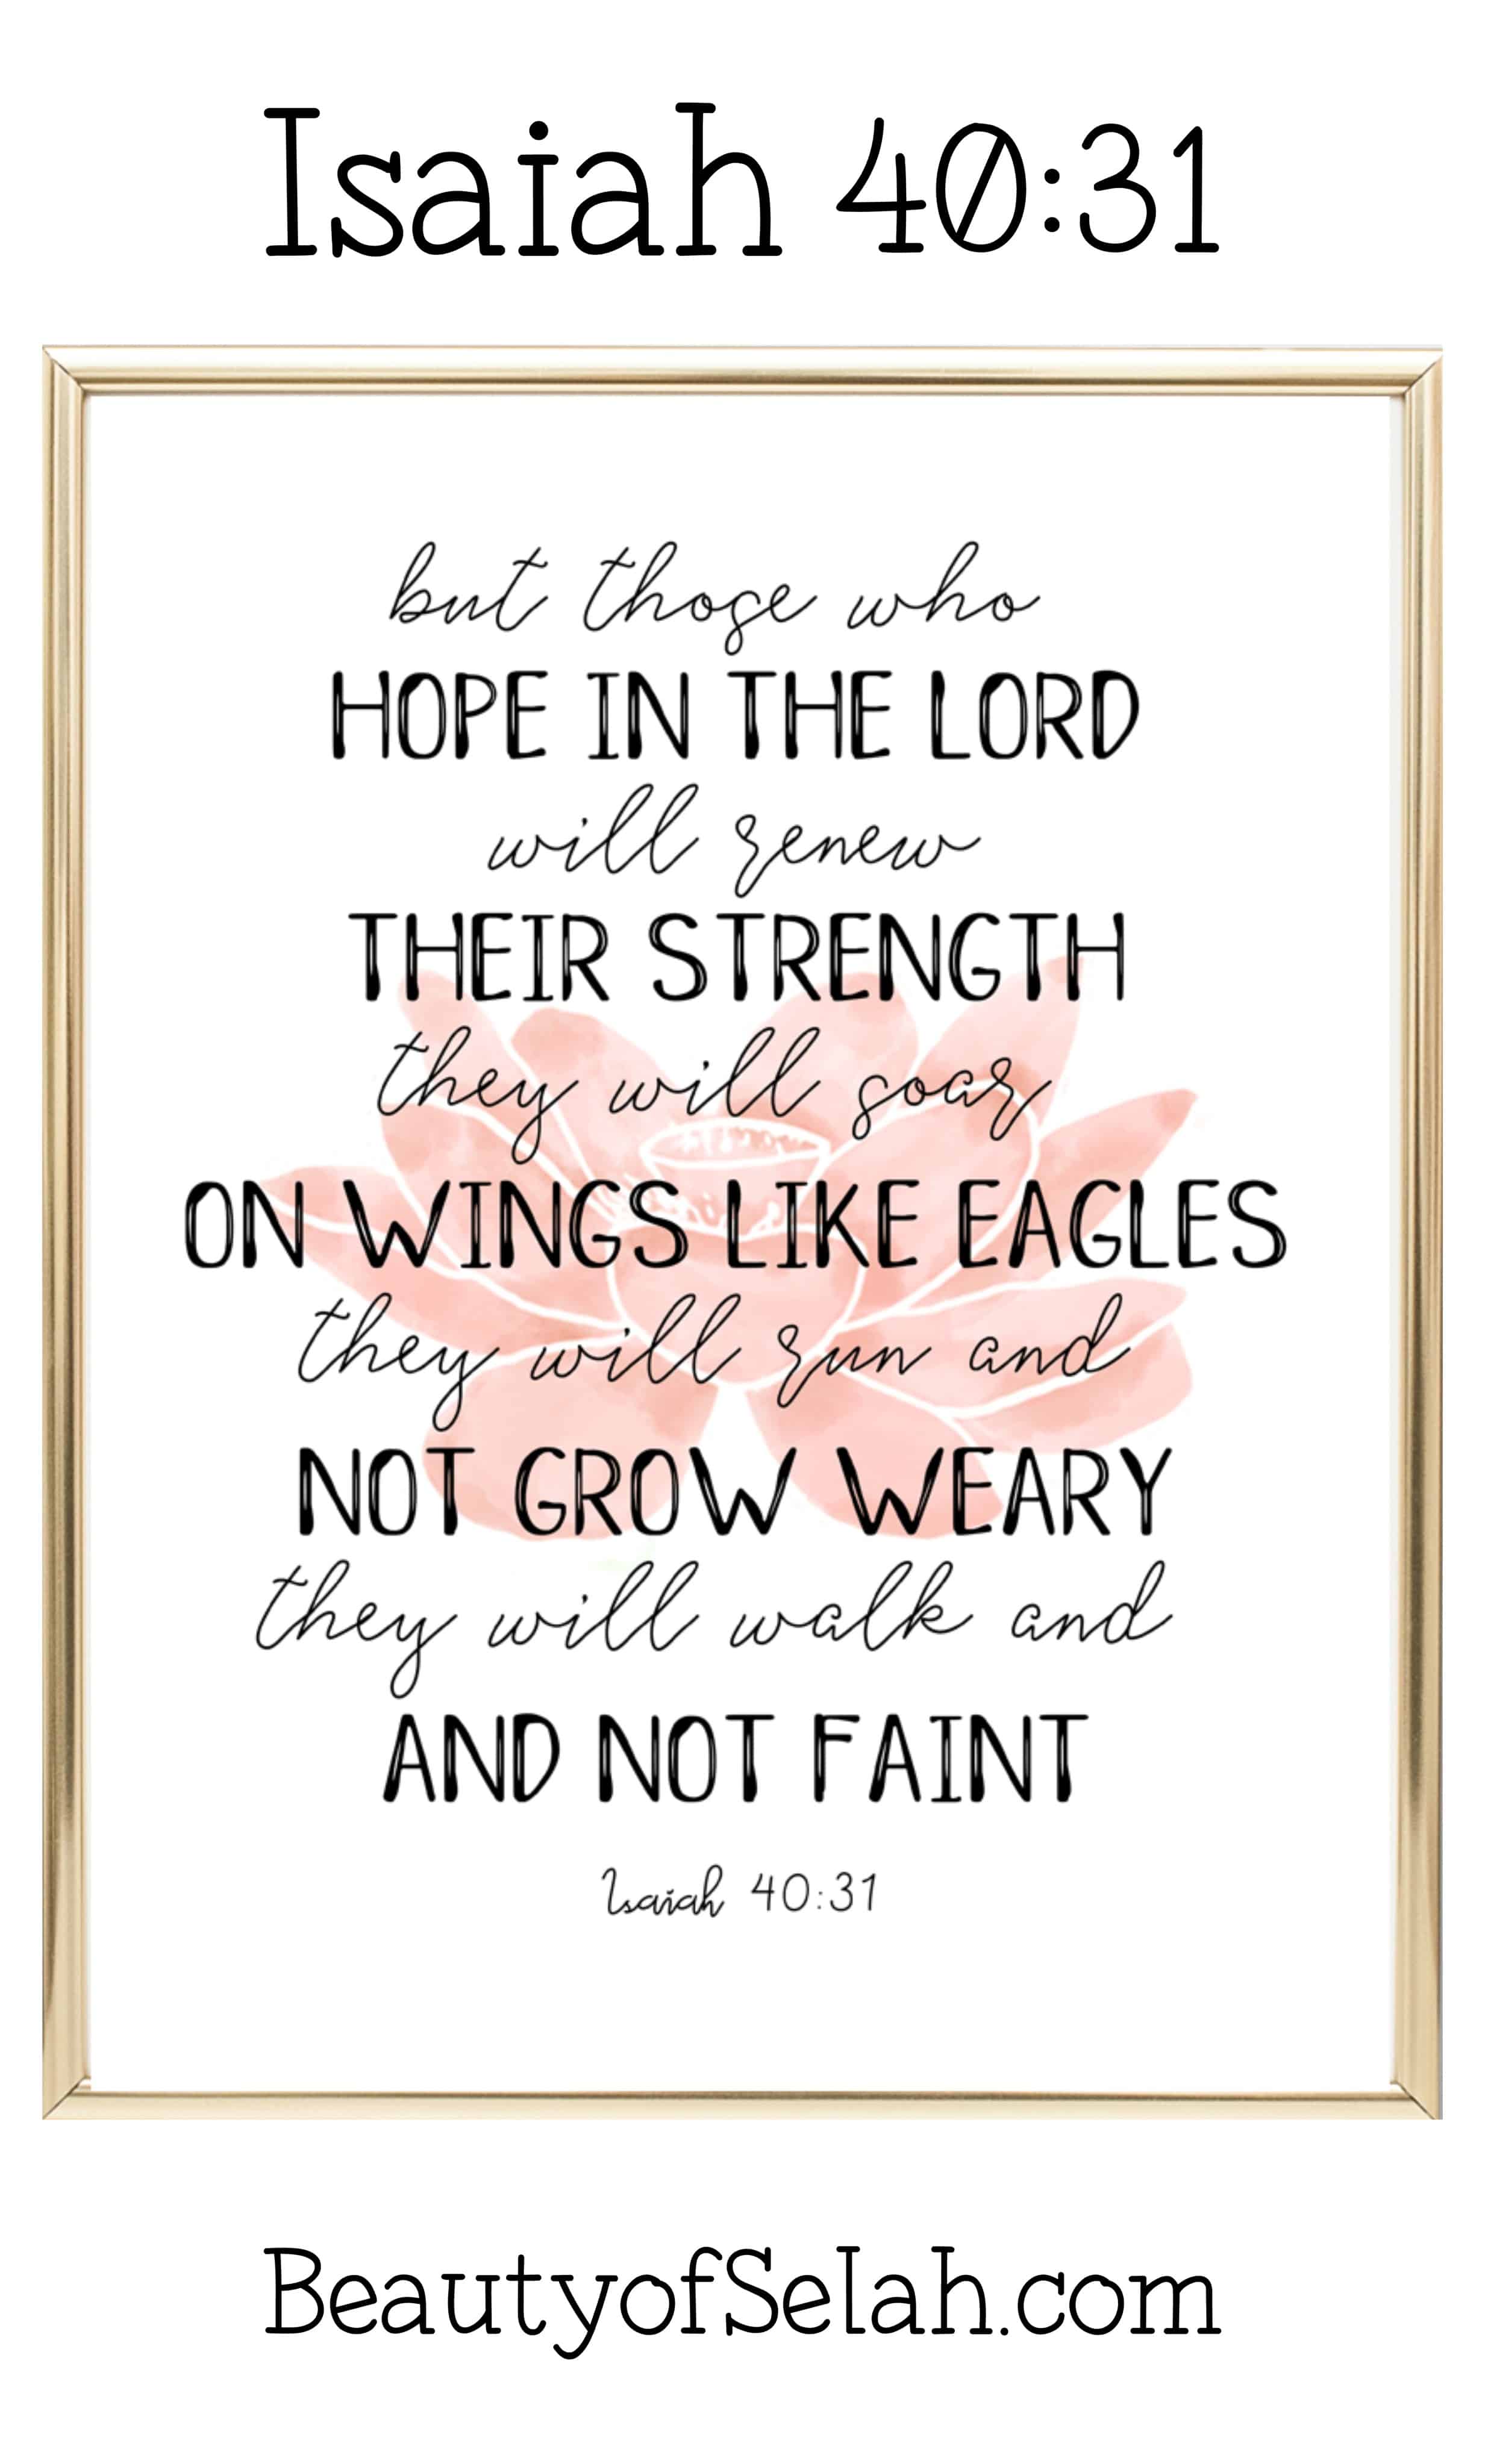 Isaiah 40:31
but those who
HOPE IN THE LORD
will renew
THEIR STRENGTH
they will soar
ON WINGS LIKE EAGLES
they will run and
NOT GROW WEARY
they will walk and
AND NOT FAINT
Isaiah 40:31
BeautyofSelah.com